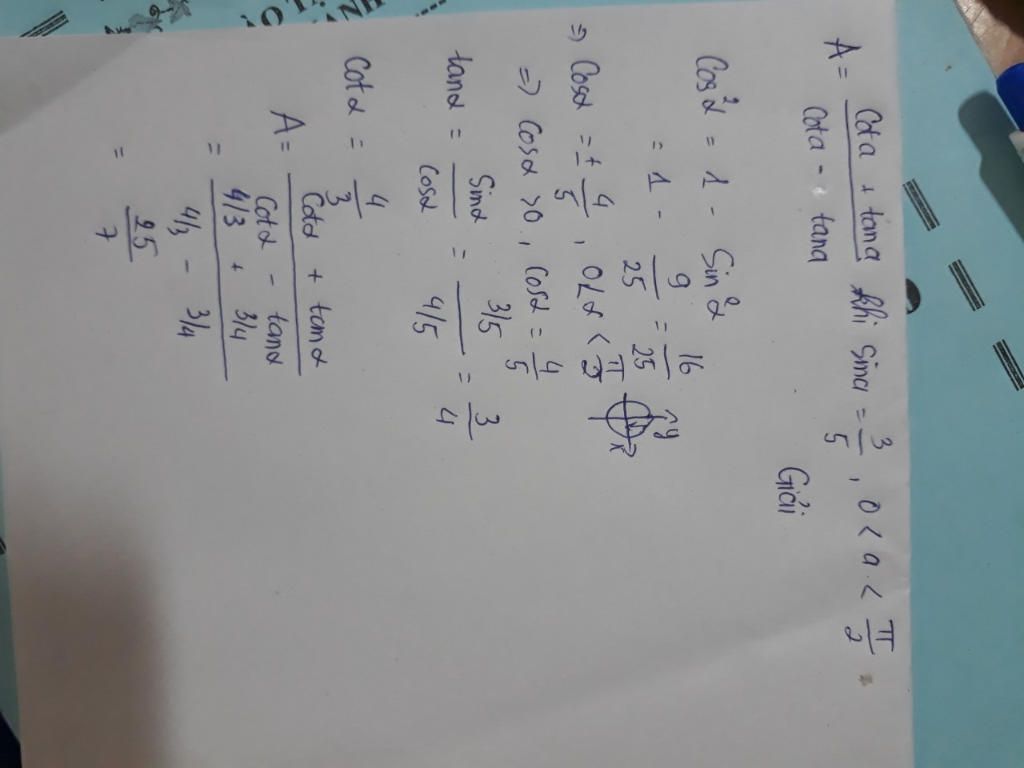 A = (Cota + tana)/(Cota - tana) khi Sina = 3/5, 0 < a < π/2
Giải
Cos²α = 1 - Sin²α
= 1 - 9/25 = 16/25
y
x
=> Cosα = ± 4/5, 0 < α < π/2
=> Cosα > 0, Cosα = 4/5
tanα = Sinα/Cosα = (3/5)/(4/5) = 3/4
Cotα = 4/3
A = (Cotα + tanα)/(Cotα - tanα)
= (4/3 + 3/4)/(4/3 - 3/4)
= 25/7